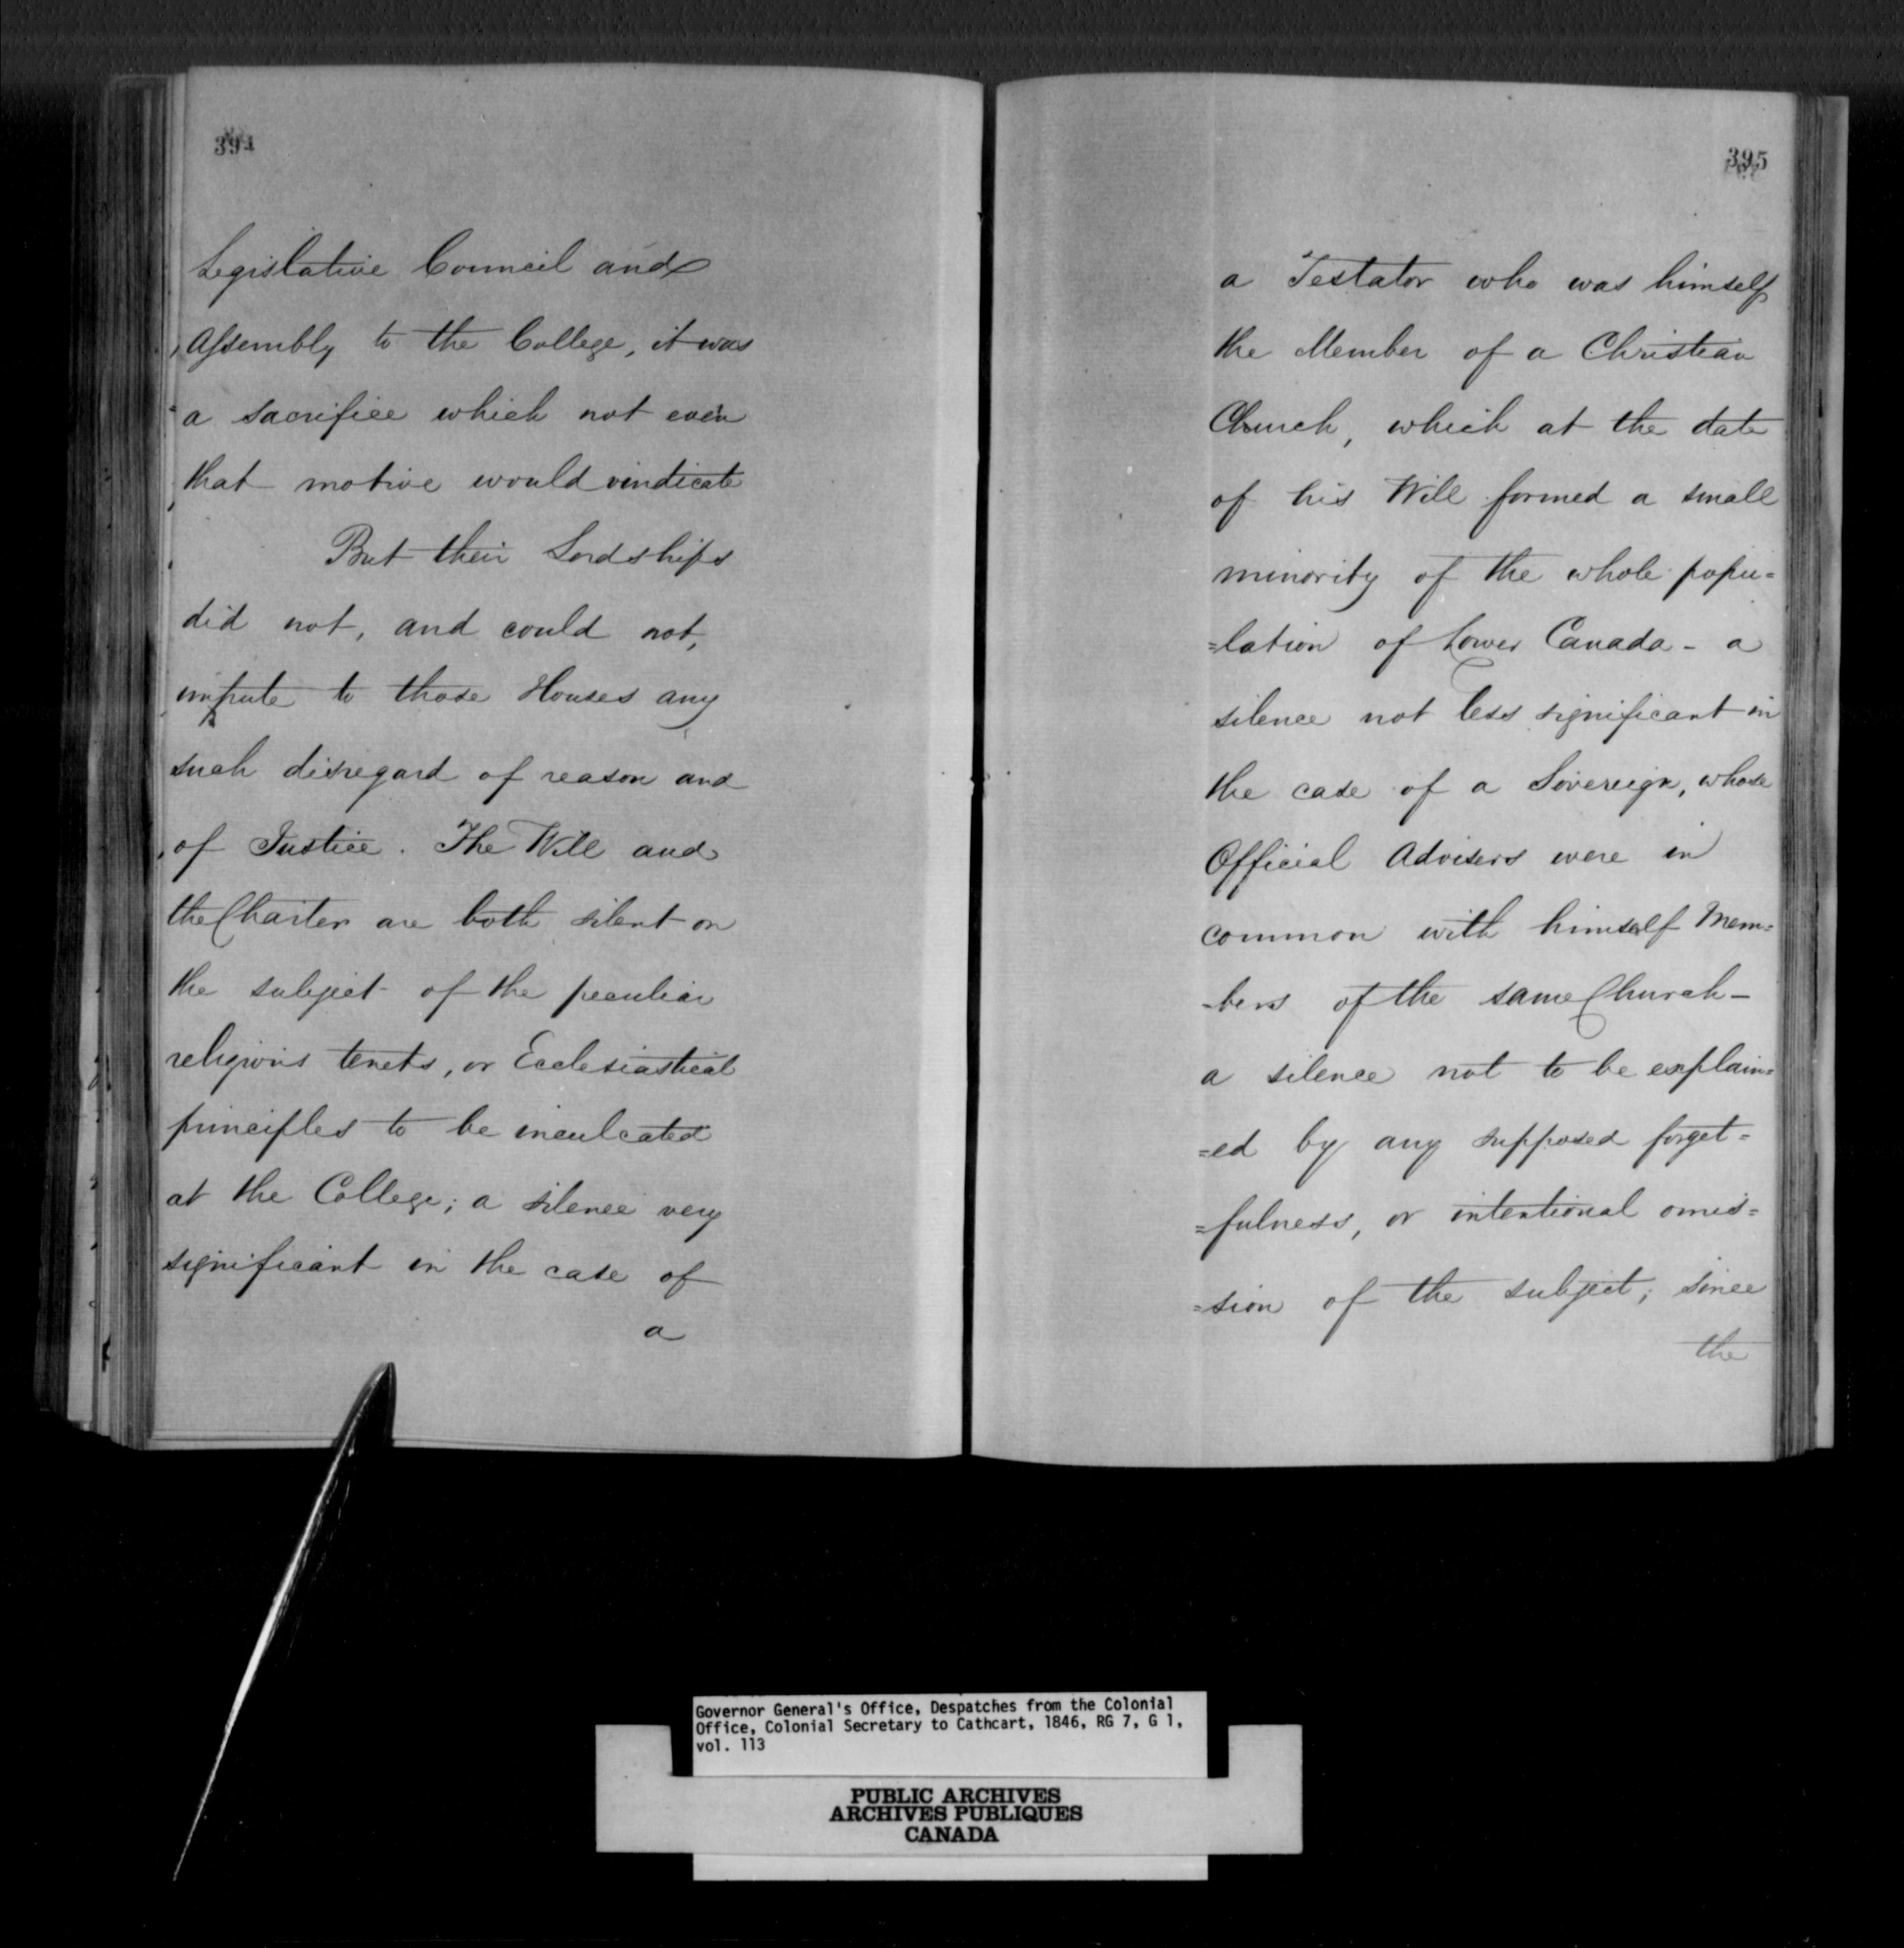 394
Legislative Council and
Assembly to the College, it was
a sacrifice which not even
that motive would vindicate
But their Lordships
did not, and could not,
impute to those Houses any
such disregard of reason and
of Justice. The Will and
the Charter are both silent on
the subject of the peculiar
religious tenets, or Ecclesiastical
principles to be inculcated
at the College; a silence very
significant in the case of
a
395
a Testator who was himself
the Member of a Christian
Church, which at the date
of his Will formed a small
minority of the whole popu=
=lation of Lower Canada - a
silence not less significant in
the case of a Sovereign, whose
Official Advisers were in
common with himself Mem=
-bers of the same Church -
a silence not to be explain=
=ed by any supposed forget=
=fulness, or intentional omis=
=sion of the subject; since
the
Governor General's Office, Despatches from the Colonial
Office, Colonial Secretary to Cathcart, 1846, RG 7, G 1,
vol. 113
PUBLIC ARCHIVES
ARCHIVES PUBLIQUES
CANADA